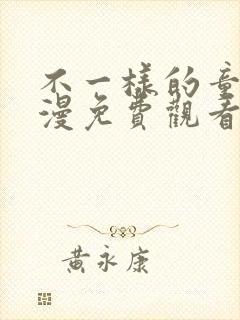 不一樣的童
漫免費觀看
黃永康